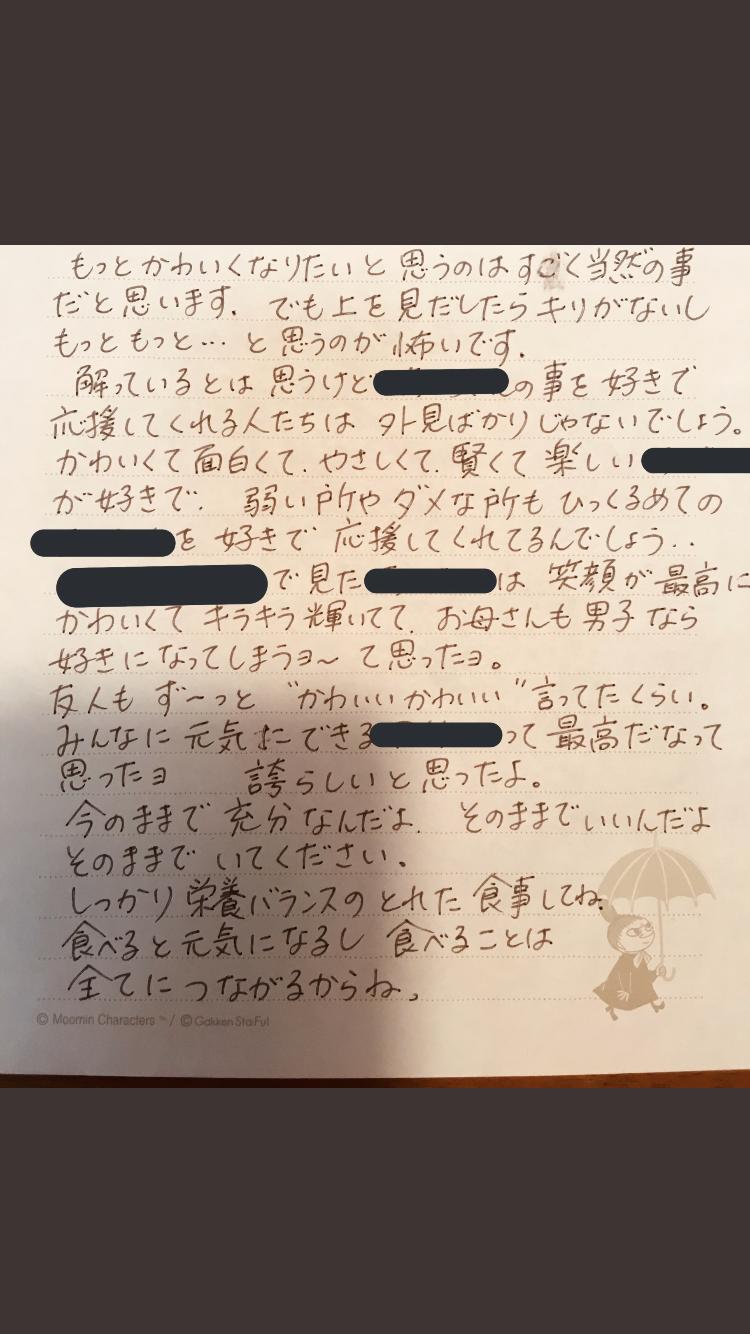 もっとかわいくなりたいと思うのはすごく当然の事
だと思います. でも上を見だしたらキリがないし
もっともっと… と思うのが怖いです.
解っているとは思うけど の事を好きで
応援してくれる人たちは 外見ばかりじゃないでしょう。
かわいくて面白くて. やさしくて. 賢くて楽しい
が好きで. 弱い所やダメな所も ひっくるめての
を 好きで 応援してくれてるんでしょう..
で見た は 笑顔が最高に
かわいくて キラキラ輝いてて. お母さんも男子なら
好きになってしまうヨ～ て思ったョ。
友人も ず～っと “かわいいかわいい”言ってたくらい。
みんなに元気まにできる って最高だなって
思ったョ 誇らしいと思ったよ。
今のままで充分なんだよ. そのままでいいんだよ
そのままで いてください.
しっかり栄養バランスのとれた食事してね.
食べると元気になるし 食べることは
全てにつながるからね.
© Moomin Characters ™ / © Gakken Sta:Ful